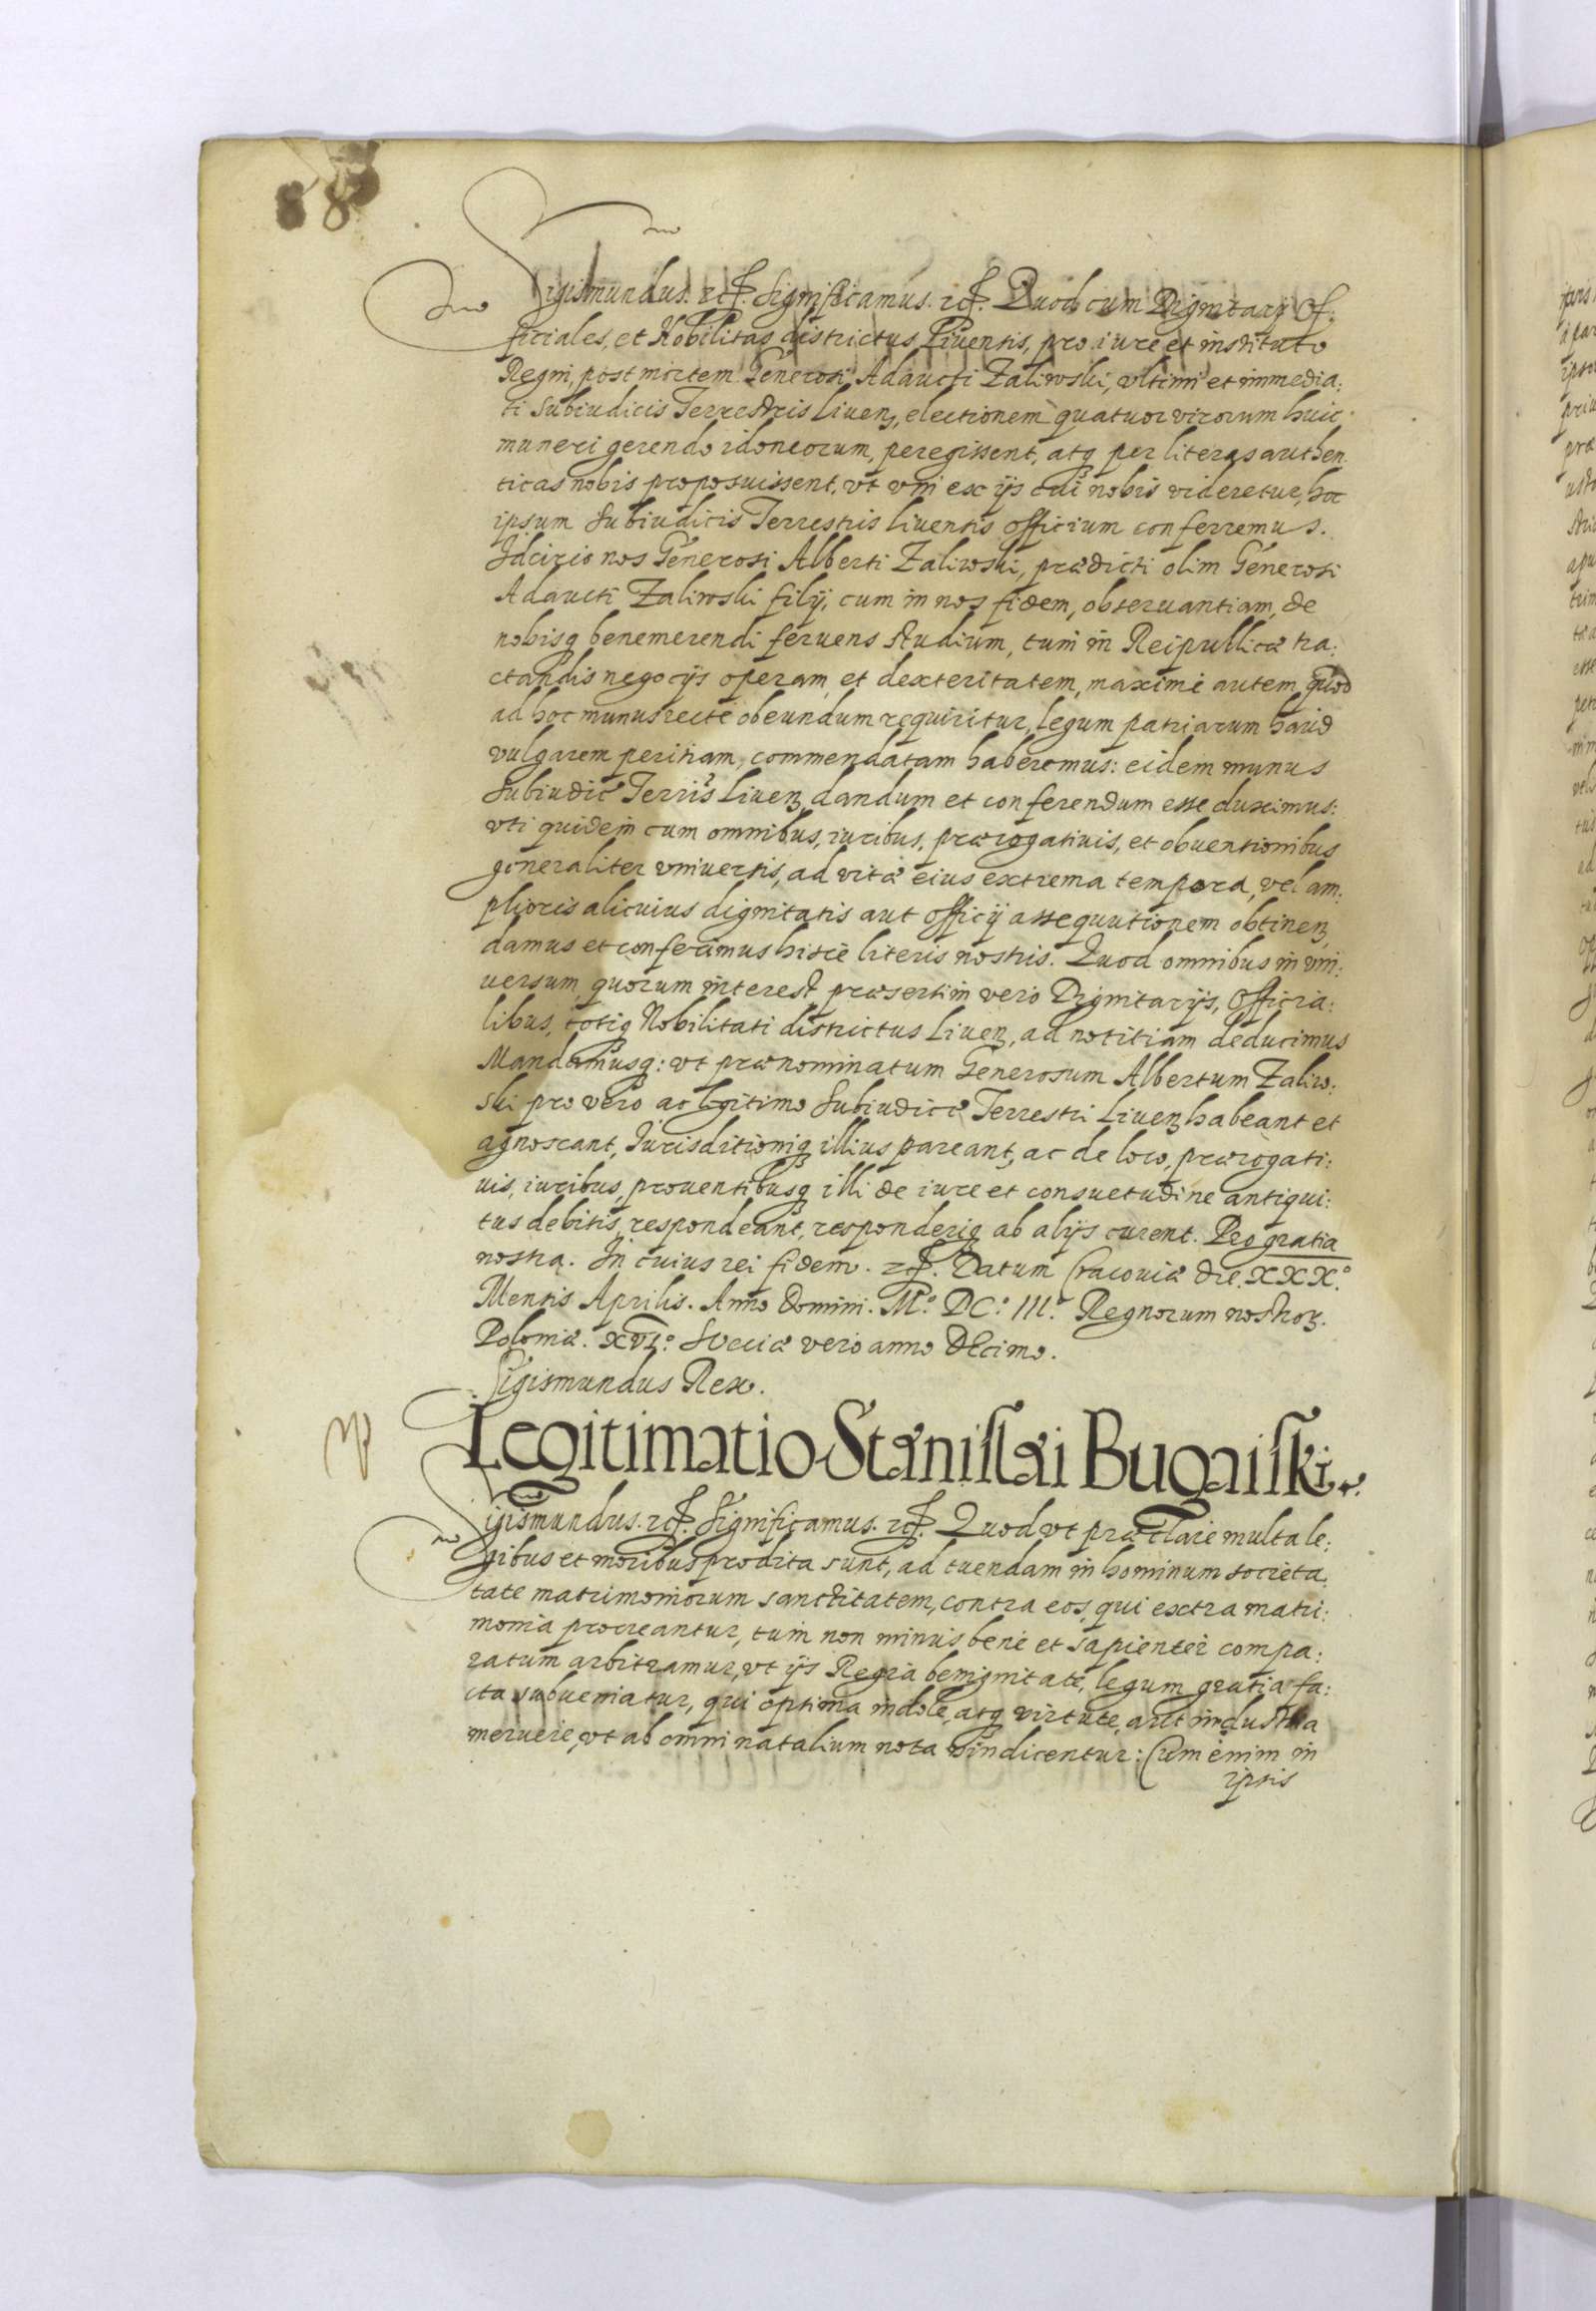 88
Sigismundus. etc. Significamus. etc. Quod cum Dignitarij Of:
ficiales, et Nobilitas districtus Liuensis, pro iure et instituto
Regni, post mortem Generosi Adaucti Zaliwski, vltimi et immedia:
ti Subiudicis Terrestris Liuenȝ, electionem quatuor virorum huic
muneri gerendo idoneorum, peregissent, atqȝ per literas authen
ticas nobis proposuissent, vt vni ex ijs cui nobis videretur, hoc
ipsum Subiudicis Terrestris Liuensis officium conferremus.
Idcirco nos Generosi Alberti Zaliwski, prædicti olim Generosi
Adaucti Zaliwski filij, cum in nos fidem, obseruantiam, de
nobisqȝ benemerendi feruens studium, tum in Reipublicæ tra:
ctandis negocijs operam, et dexteritatem, maximè autem, quod
ad hoc munus recte obeundum requiritur, legum patriarum haud
vulgarem peritiam, commendatam haberemus: eidem munus
Subiudic Terris Liuenȝ dandum et conferendum esse duximus:
vti quidem cum omnibus, iuribus, prærogatiuis, et obuentionibus
generaliter vniuersis, ad vitæ eius extrema tempora, vel am:
plioris alicuius dignitatis aut officij assequutionem obtinenȝ,
damus et conferimus hisce literis nostris. Quod omnibus in vni:
uersum quorum interest præsertim vero Dignitarijs, Officia:
libus, totiqȝ Nobilitati districtus Liuenȝ, ad notitiam deducimus
Mandamusqȝ: vt prænominatum Generosum Albertum Zaliw:
ski pro vero ac legitimo Subiudice Terrestri Liuenȝ habeant et
agnoscant, Iurisditioniqȝ illius pareant, ac de loco, prærogati:
uis, iuribus, prouentibusqȝ illi de iure et consuetudine antiqui:
tus debitis, respondeant, responderiqȝ ab alijs curent. Pro gratia
nostra. In cuius rei fidem. etc. Datum Cracouiæ die. XXX.o
Mensis Aprilis. Anno Domini. M.o DC.o III.o Regnorum nostroȝ.
Poloniæ. XVI.o Sueciæ vero anno DEcimo.
Sigismundus Rex.
Legitimatio Stanislai Bugaiski.
Sigismundus. etc. Significamus. etc. Quod vt præclare multa le:
gibus et moribus prodita sunt, ad tuendam in hominum societa
tate matrimoniorum sanctitatem, contra eos, qui extra matri:
monia procreantur, tum non minus bene et sapienter compa:
ratum arbitramur, vt ijs Regia benignitate, legum gratia fa:
cta subueniatur, qui optima indole, atqȝ virtute, aut industria
meruere, vt ab omni natalium nota vindicentur: Cum enim in
ipsis